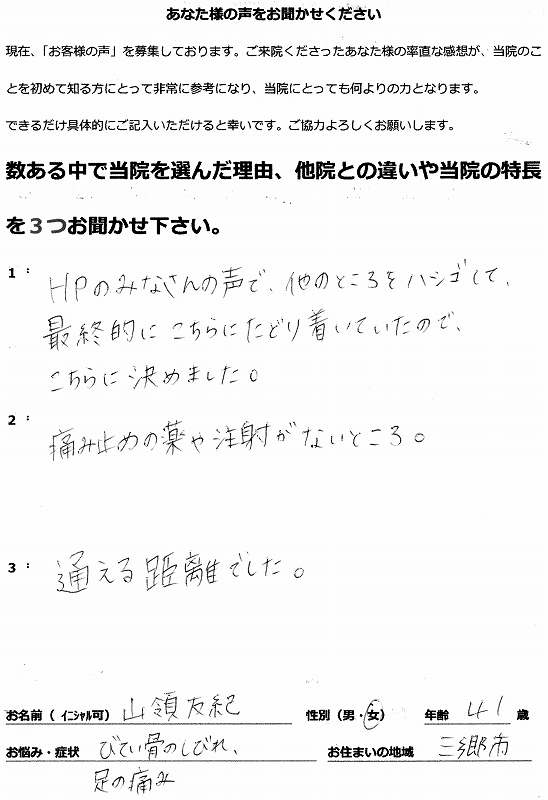 あなた様の声をお聞かせください
現在、「お客様の声」を募集しております。ご来院くださったあなた様の率直な感想が、当院のこ
とを初めて知る方にとって非常に参考になり、当院にとっても何よりの力となります。
できるだけ具体的にご記入いただけると幸いです。ご協力よろしくお願いします。
数ある中で当院を選んだ理由、他院との違いや当院の特長
を3つお聞かせ下さい。
1： HPのみなさんの声で、他のところをハシゴして、
最終的にこちらにたどり着いていたので、
こちらに決めました。
2： 痛み止めの薬や注射がないところ。
3： 通える距離でした。
お名前（ｲﾆｼｬﾙ可） 山領友紀 性別（男・女） 年齢 41 歳
お悩み・症状 びてい骨のしびれ、 お住まいの地域 三郷市
足の痛み